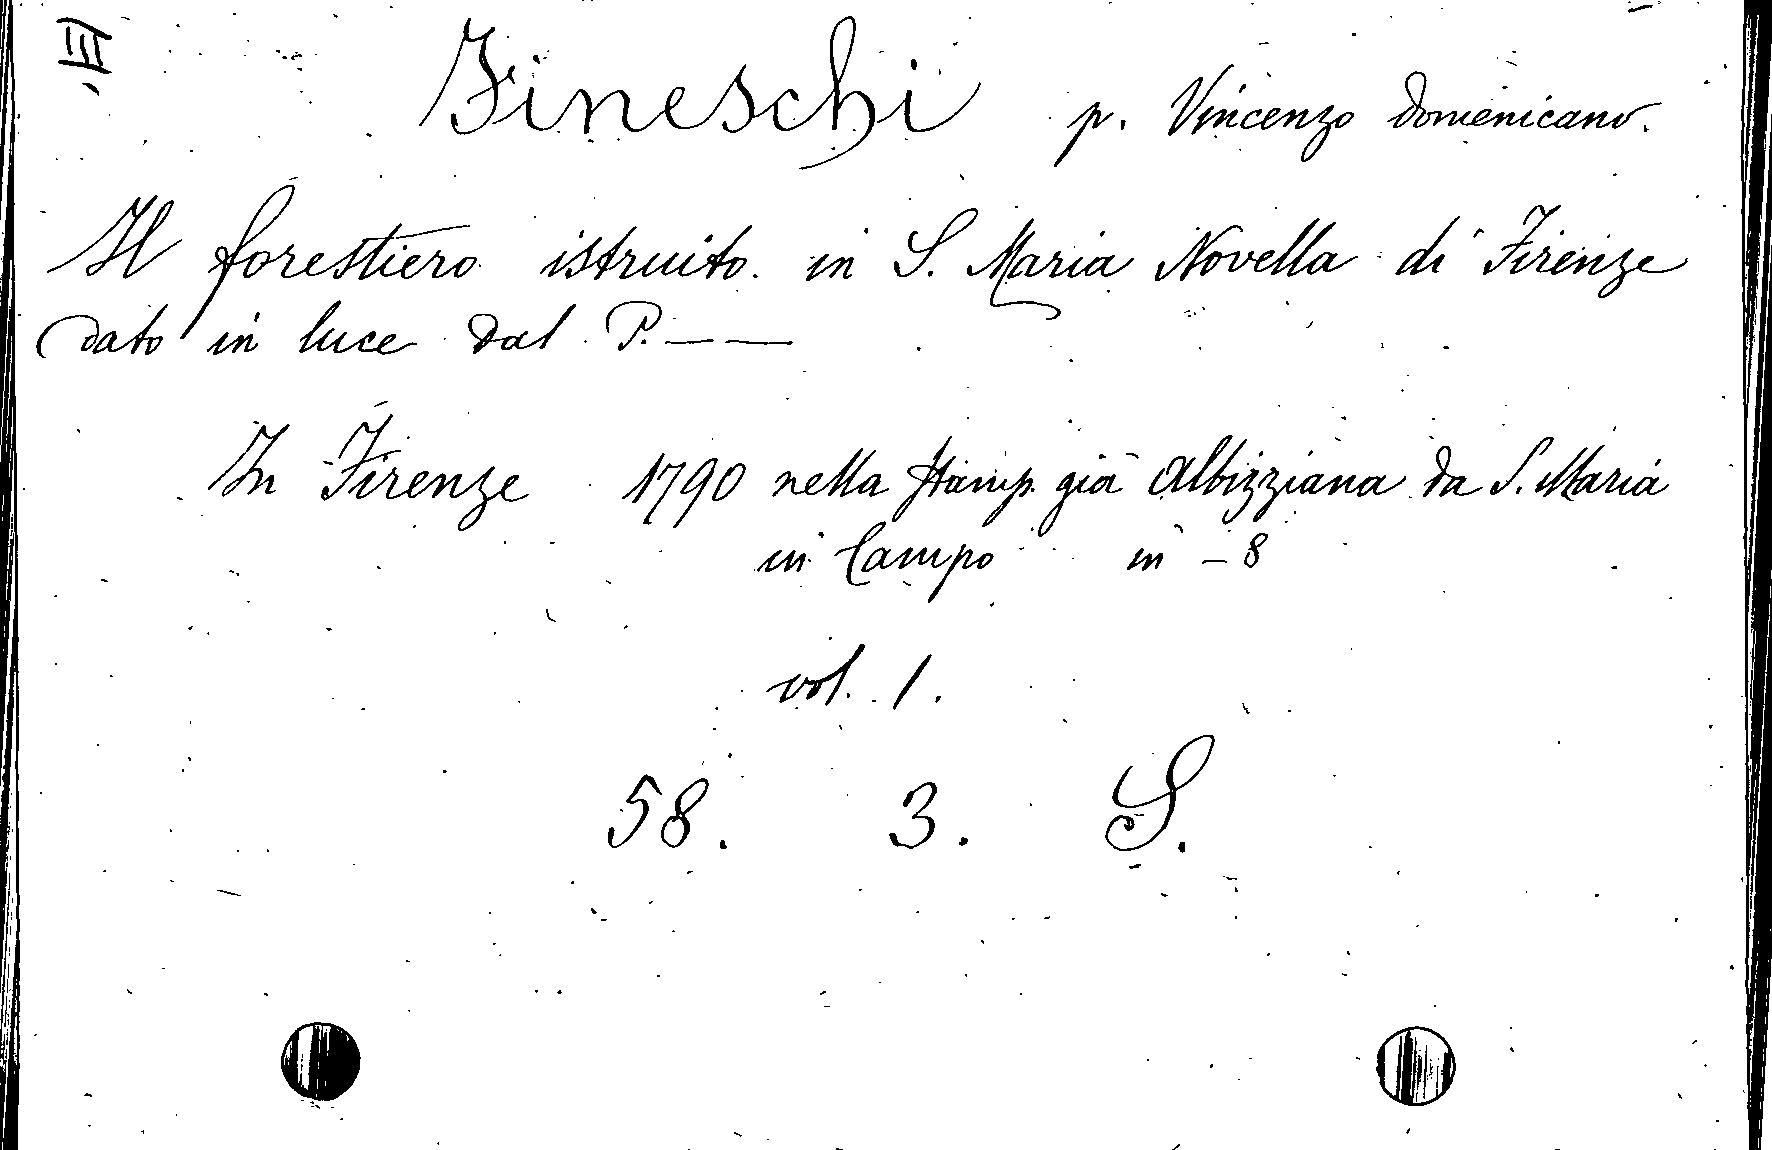 Fineschi p. Vincenzo domenicano.
Il forestiero istruito in S. Maria Novella di Firenze
dato in luce dal P. — —
In Firenze 1790 nella Stamp. già Albizziana da S. Maria
in Campo in - 8
vol. 1.
58. 3. S.